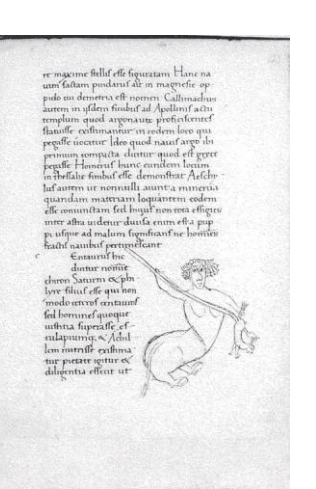 re maxime stellis esse figuratam Hanc na
uim factam pindarus ait in magnesie op
pido cui demetria est nomen Callimachus
autem in isdem finibus ad Apollinis actii
templum quod argonaute proficiscentes
statuisse existimantur in eodem loco qui
pegasse uocatur Ideo quod nauis argo ibi
primum compacta dicitur quod est grece
pegasse Homerus hunc eundem locum
in thessalie finibus esse demonstrat Aeschy
lus autem ut nonnulli aiunt a minerua
quandam materiam loquentem eodem
esse coniunctam sed huius non tota effigies
inter astra uidetur diuisa enim est a pup
pi usque ad malum significans ne homines
fractis nauibus pertimescant
Centaurus hic
dicitur nomine
chiron Saturni & phi
lyre filius esse qui non
modo ceteros centauros
sed homines quoque
iustitia superasse es
culapium & Achil
lem nutrisse existima
tur pietate igitur &
diligentia effecit ut